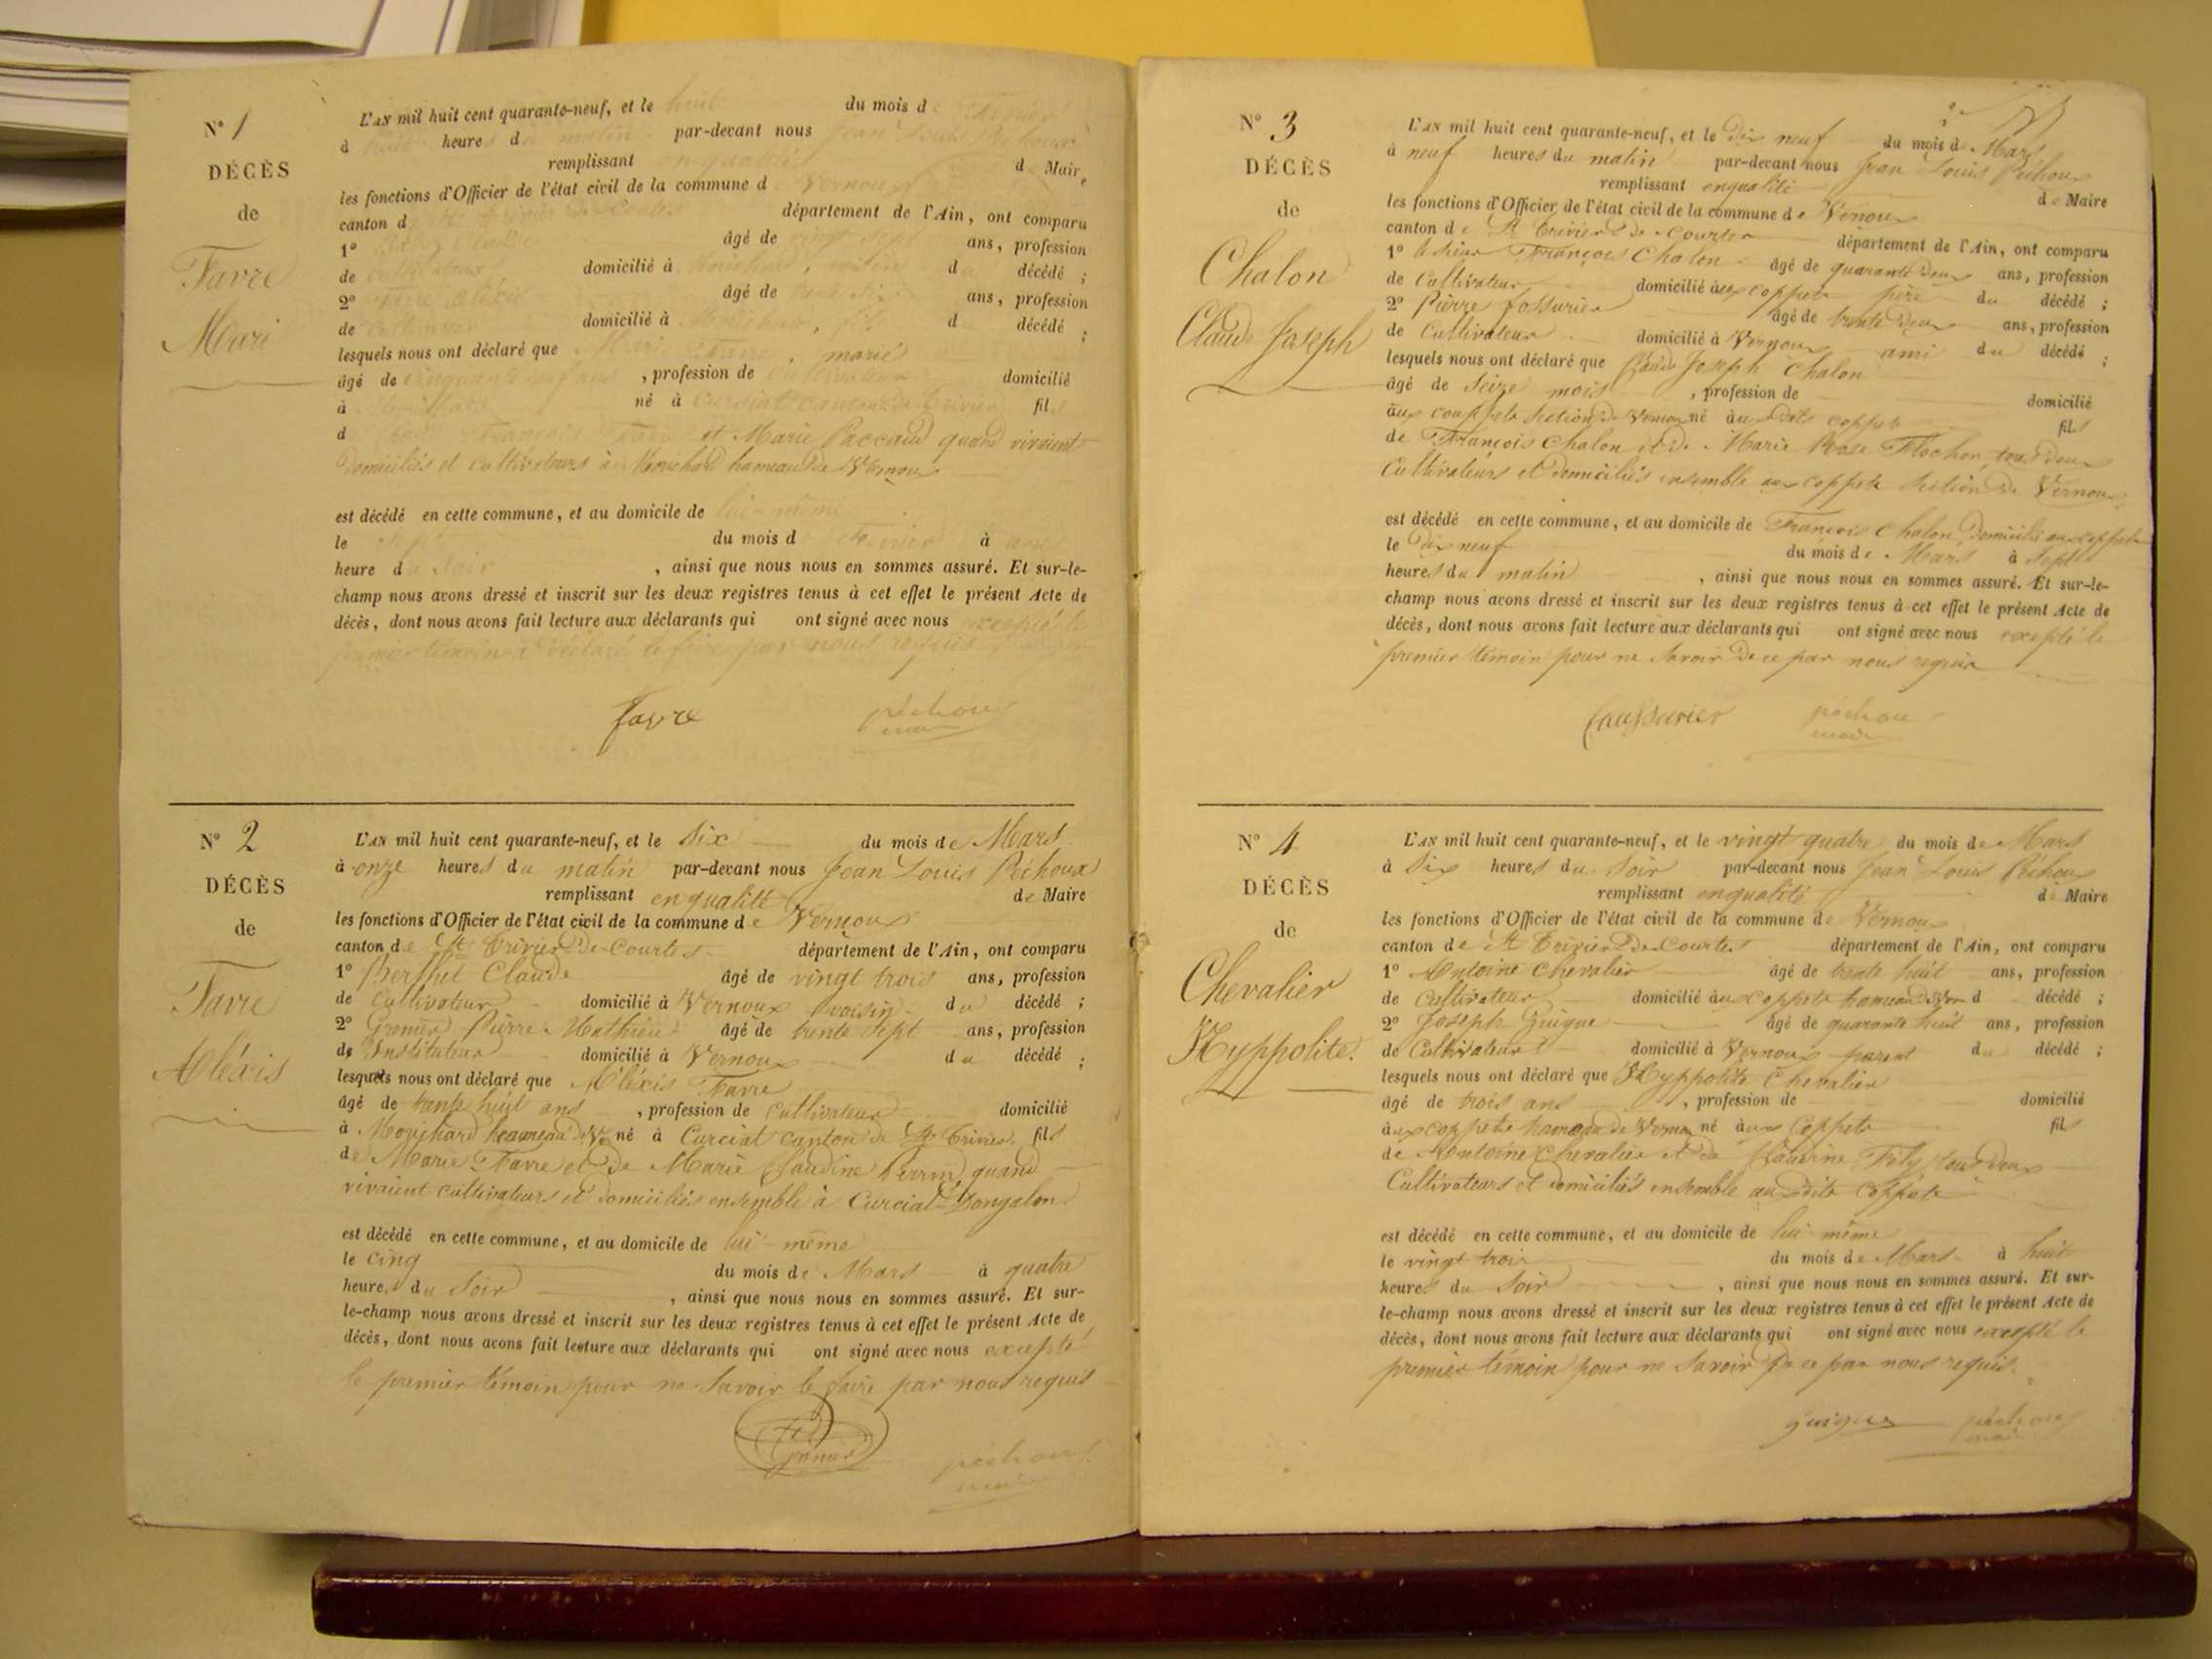 N° 1
DÉCÈS
de
Favre
Mari
L'AN mil huit cent quarante-neuf, et le huit du mois de Février
à huit heures du matin par-devant nous Jean Louis Péchoux
remplissant en qualité de Maire
les fonctions d'Officier de l'état civil de la commune de Vernoux
canton d département de l'Ain, ont comparu
1° Claude âgé de vingt sept ans, profession
de cultivateur domicilié à Mouchard, voisin du décédé ;
2° Favre Aléxis âgé de ans, profession
de cultivateur domicilié à Mouchard, fils du décédé ;
lesquels nous ont déclaré que Marie Favre, marié
âgé de cinquante neuf ans, profession de cultivateur domicilié
à Mouchard né à Curciat canton de St Trivier fils
de François Favre et Marie Paccaud quand vivaient
domiciliés et cultivateurs à Mouchard hameau de Vernoux
est décédé en cette commune, et au domicile de lui-même
le sept du mois de Février à une
heure du soir, ainsi que nous nous en sommes assuré. Et sur-le-
champ nous avons dressé et inscrit sur les deux registres tenus à cet effet le présent Acte de
décès, dont nous avons fait lecture aux déclarants qui ont signé avec nous excepté le
premier témoin a déclaré le faire par nous requis
favre péchoux
maire
N° 2
DÉCÈS
de
Favre
Aléxis
L'AN mil huit cent quarante-neuf, et le Six du mois de Mars
à onze heures du matin par-devant nous Jean Louis Péchoux
remplissant en qualité de Maire
les fonctions d'Officier de l'état civil de la commune de Vernoux
canton de St Trivier De-Courtes département de l'Ain, ont comparu
1° Berthet Claude âgé de vingt trois ans, profession
de cultivateur domicilié à Vernoux voisin du décédé ;
2° Grenier Pierre Mathieu âgé de trente sept ans, profession
de Instituteur domicilié à Vernoux du décédé ;
lesquels nous ont déclaré que Aléxis Favre
âgé de trente huit ans, profession de cultivateur domicilié
à Mouchard hameau de Ve né à Curciat canton de St Trivier fils
de Marie Favre et De Marie Claudine Perrin, quand
vivaient cultivateurs et domiciliés ensemble à Curciat-Dongalon
est décédé en cette commune, et au domicile de lui-même
le cinq du mois de Mars à quatre
heures du Soir, ainsi que nous nous en sommes assuré. Et sur-
le-champ nous avons dressé et inscrit sur les deux registres tenus à cet effet le présent Acte de
décès, dont nous avons fait lecture aux déclarants qui ont signé avec nous excepté
le premier témoin pour ne Savoir le faire par nous requis
Grenier péchoux
maire
N° 3
DÉCÈS
de
Chalon
Claude Joseph
L'AN mil huit cent quarante-neuf, et le dix neuf du mois de Mars
à neuf heures du matin par-devant nous Jean Louis Péchoux
remplissant en qualité de Maire
les fonctions d'Officier de l'état civil de la commune de Vernoux
canton de St Trivier De-Courtes département de l'Ain, ont comparu
1° le sieur François Chalon âgé de quarante Deux ans, profession
de Cultivateur domicilié aux coppets père du décédé ;
2° Pierre fossurier âgé de trente Deux ans, profession
de Cultivateur domicilié à Vernoux ami du décédé ;
lesquels nous ont déclaré que Claude Joseph Chalon
âgé de Seize mois, profession de domicilié
aux couppets section de Vernoux né aux Dits coppets fils
de François Chalon et de Marie Rose Flochon tous deux
Cultivateurs et Domiciliés ensemble aux coppets Section De Vernoux
est décédé en cette commune, et au domicile de François Chalon Domicilié aux coppets
le Dix neuf du mois de Mars à Sept
heures du matin, ainsi que nous nous en sommes assuré. Et sur-le-
champ nous avons dressé et inscrit sur les deux registres tenus à cet effet le présent Acte de
décès, dont nous avons fait lecture aux déclarants qui ont signé avec nous excepté le
premier témoin pour ne Savoir De ce par nous requis
faussurier péchoux
maire
N° 4
DÉCÈS
de
Chevalier
Hyppolite.
L'AN mil huit cent quarante-neuf, et le vingt quatre du mois de Mars
à Six heures du Soir par-devant nous Jean Louis Péchoux
remplissant en qualité de Maire
les fonctions d'Officier de l'état civil de la commune de Vernoux
canton de St Trivier De-Courtes département de l'Ain, ont comparu
1° Antoine Chevalier âgé de trente huit ans, profession
de Cultivateur domicilié aux coppets hameau de Ver d décédé ;
2° Joseph Guigue âgé de quarante huit ans, profession
de Cultivateur domicilié à Vernoux parent du décédé ;
lesquels nous ont déclaré que Hyppolite Chevalier
âgé de trois ans, profession de domicilié
aux coppets hameau de Vernoux né aux Coppets fils
de Antoine Chevalier et de Claudine Fély tous Deux
Cultivateurs et domiciliés ensemble aux dits coppets
est décédé en cette commune, et au domicile de lui-même
le vingt trois du mois de Mars à huit
heures du Soir, ainsi que nous nous en sommes assuré. Et sur-
le-champ nous avons dressé et inscrit sur les deux registres tenus à cet effet le présent Acte de
décès, dont nous avons fait lecture aux déclarants qui ont signé avec nous excepté le
premier témoin pour ne Savoir De ce par nous requis.
guigue péchoux
maire